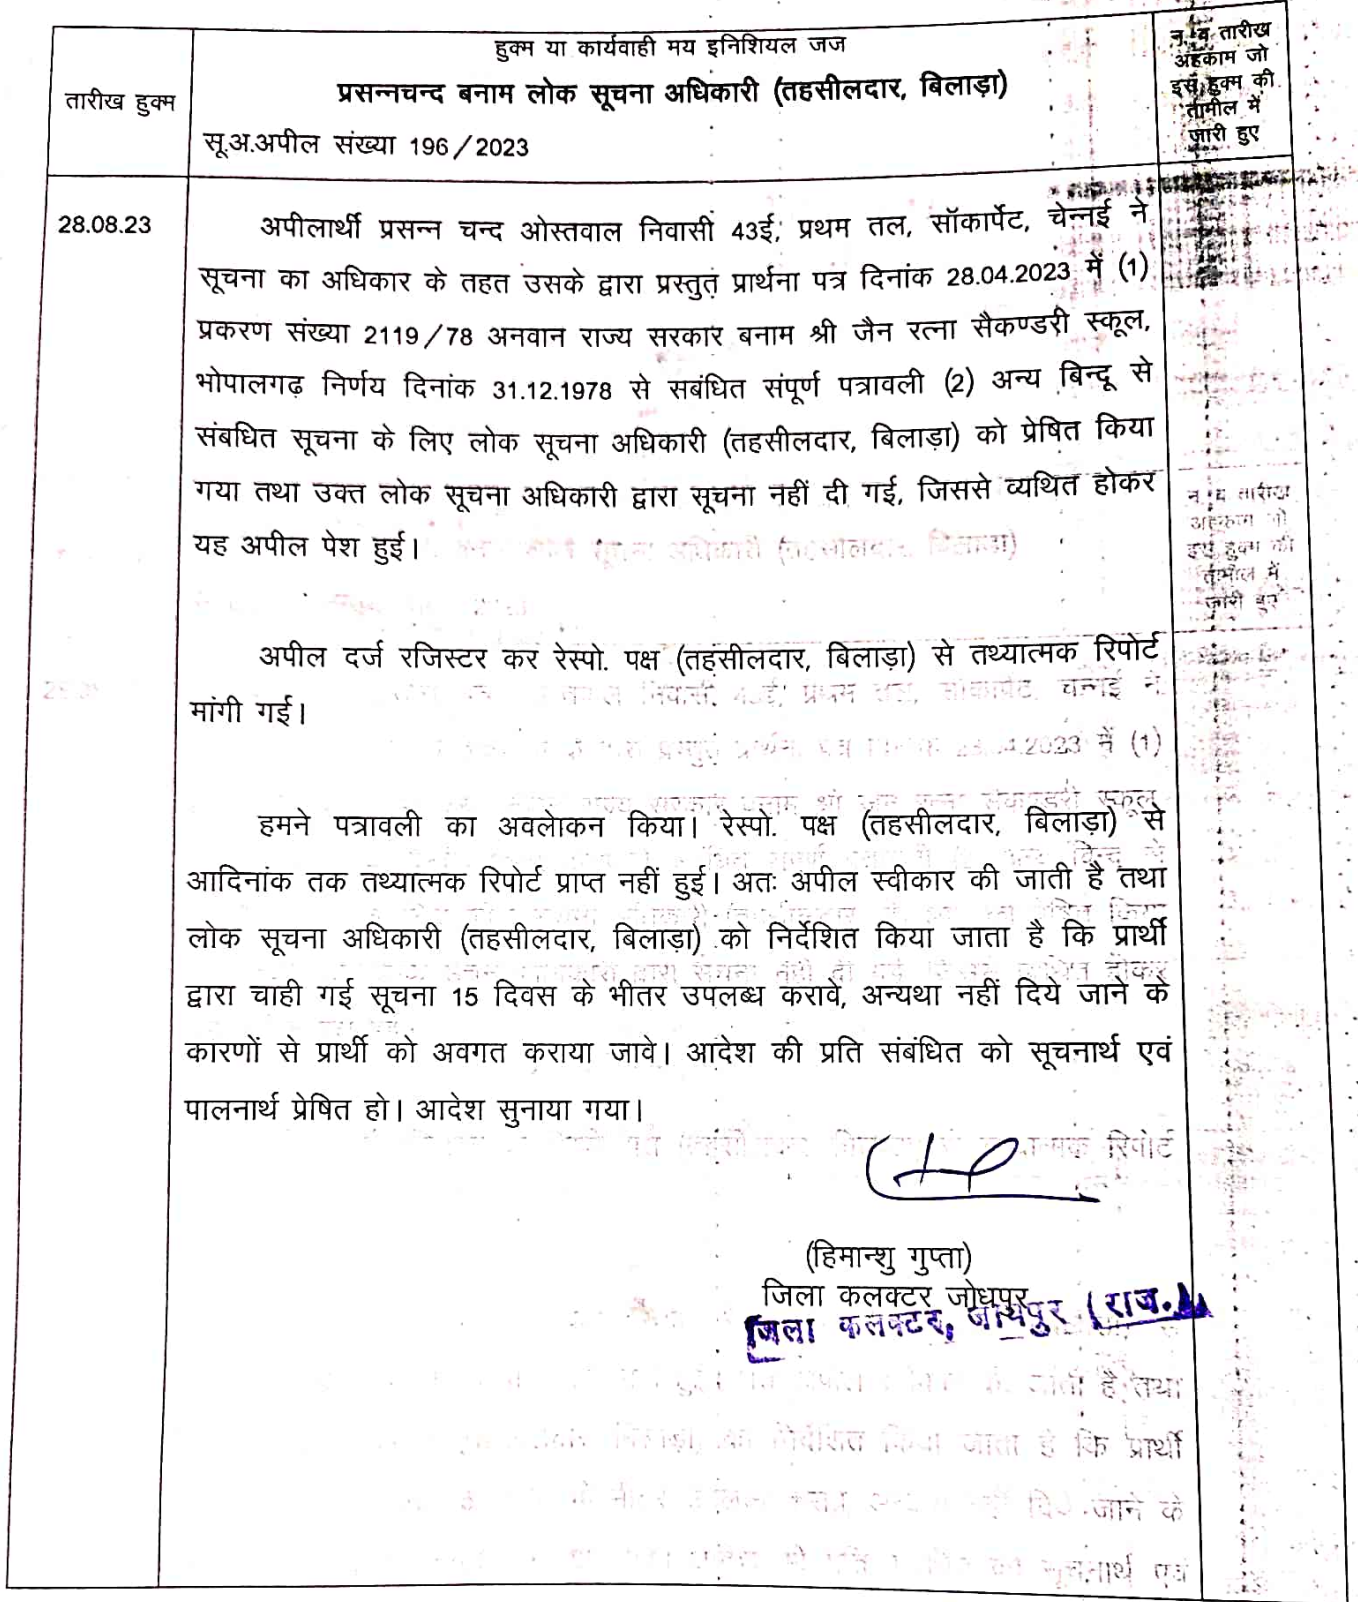 तारीख हुक्म
हुक्म या कार्यवाही मय इनिशियल जज
प्रसन्नचन्द बनाम लोक सूचना अधिकारी (तहसीलदार, बिलाड़ा)
सू.अ.अपील संख्या 196/2023
न व तारीख
अहकाम जो
इस हुक्म की
तामील में
जारी हुए
28.08.23
अपीलार्थी प्रसन्न चन्द ओस्तवाल निवासी 43ई, प्रथम तल, सॉकार्पेट, चेन्नई ने
सूचना का अधिकार के तहत उसके द्वारा प्रस्तुत प्रार्थना पत्र दिनांक 28.04.2023 में (1)
प्रकरण संख्या 2119/78 अनवान राज्य सरकार बनाम श्री जैन रत्ना सैकण्डरी स्कूल,
भोपालगढ़ निर्णय दिनांक 31.12.1978 से सबंधित संपूर्ण पत्रावली (2) अन्य बिन्दू से
संबधित सूचना के लिए लोक सूचना अधिकारी (तहसीलदार, बिलाड़ा) को प्रेषित किया
गया तथा उक्त लोक सूचना अधिकारी द्वारा सूचना नहीं दी गई, जिससे व्यथित होकर
यह अपील पेश हुई।
अपील दर्ज रजिस्टर कर रेस्पो. पक्ष (तहसीलदार, बिलाड़ा) से तथ्यात्मक रिपोर्ट
मांगी गई।
हमने पत्रावली का अवलोकन किया। रेस्पो. पक्ष (तहसीलदार, बिलाड़ा) से
आदिनांक तक तथ्यात्मक रिपोर्ट प्राप्त नहीं हुई। अतः अपील स्वीकार की जाती है तथा
लोक सूचना अधिकारी (तहसीलदार, बिलाड़ा) को निर्देशित किया जाता है कि प्रार्थी
द्वारा चाही गई सूचना 15 दिवस के भीतर उपलब्ध करावे, अन्यथा नहीं दिये जाने के
कारणों से प्रार्थी को अवगत कराया जावे। आदेश की प्रति संबंधित को सूचनार्थ एवं
पालनार्थ प्रेषित हो। आदेश सुनाया गया।
(हिमान्शु गुप्ता)
जिला कलक्टर जोधपुर
जिला कलक्टर, जोधपुर (राज.)